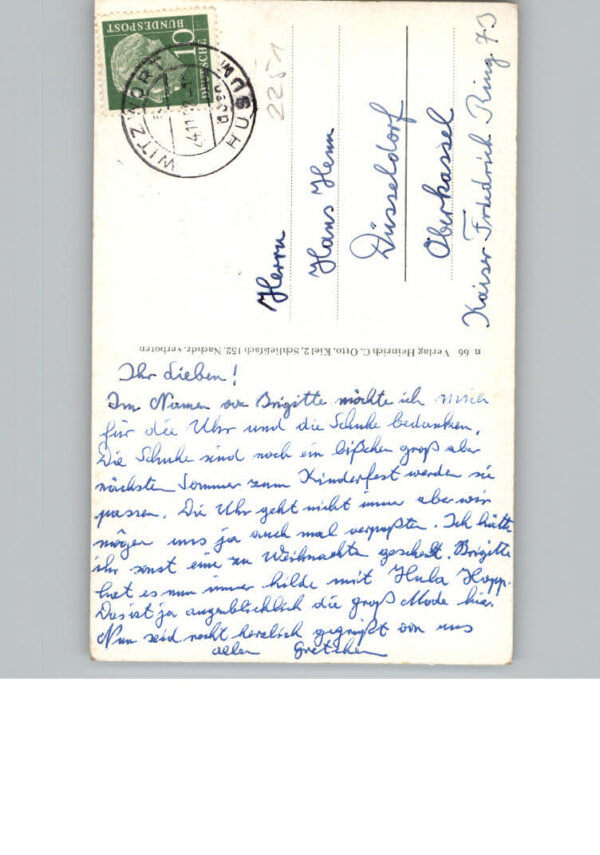 DEUTSCHE
BUNDESPOST
10
WITZWORT
HUSUM
2251
Herrn
Hans Henn
Düsseldorf
Oberkassel
Kaiser Friedrich Ring 73
n 66 Verlag Heinrich C. Otto, Kiel 2, Schließfach 152, Nachdr. verboten
Ihr Lieben!
Im Namen von Brigitte möchte ich mich
für die Uhr und die Schuhe bedanken.
Die Schuhe sind noch ein bißchen groß aber
nächsten Sommer zum Kinderfest werden sie
passen. Die Uhr geht nicht immer aber wir
mögen uns ja auch mal
. Ich hätte
ihr sonst eine zu Weihnachten geschenkt. Brigitte
hat es nun immer hilde mit Hula Hopp.
Das ist ja augenblicklich die groß Mode hier.
Nun seid recht herzlich gegrüßt von uns
allen Gretchen